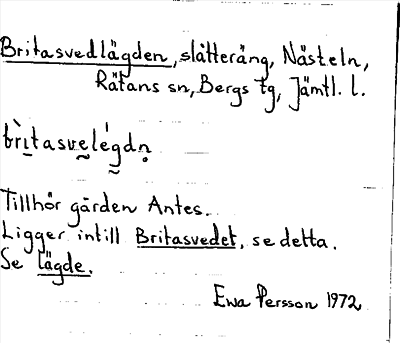 Britasvedlägden, slåtteräng, Nästeln,
Rätans sn, Bergs tg, Jämtl. l.
brìtasvelégdn̥
Tillhör gården Antes.
Ligger intill Britasvedet, se detta.
Se lägde.
Ewa Persson 1972